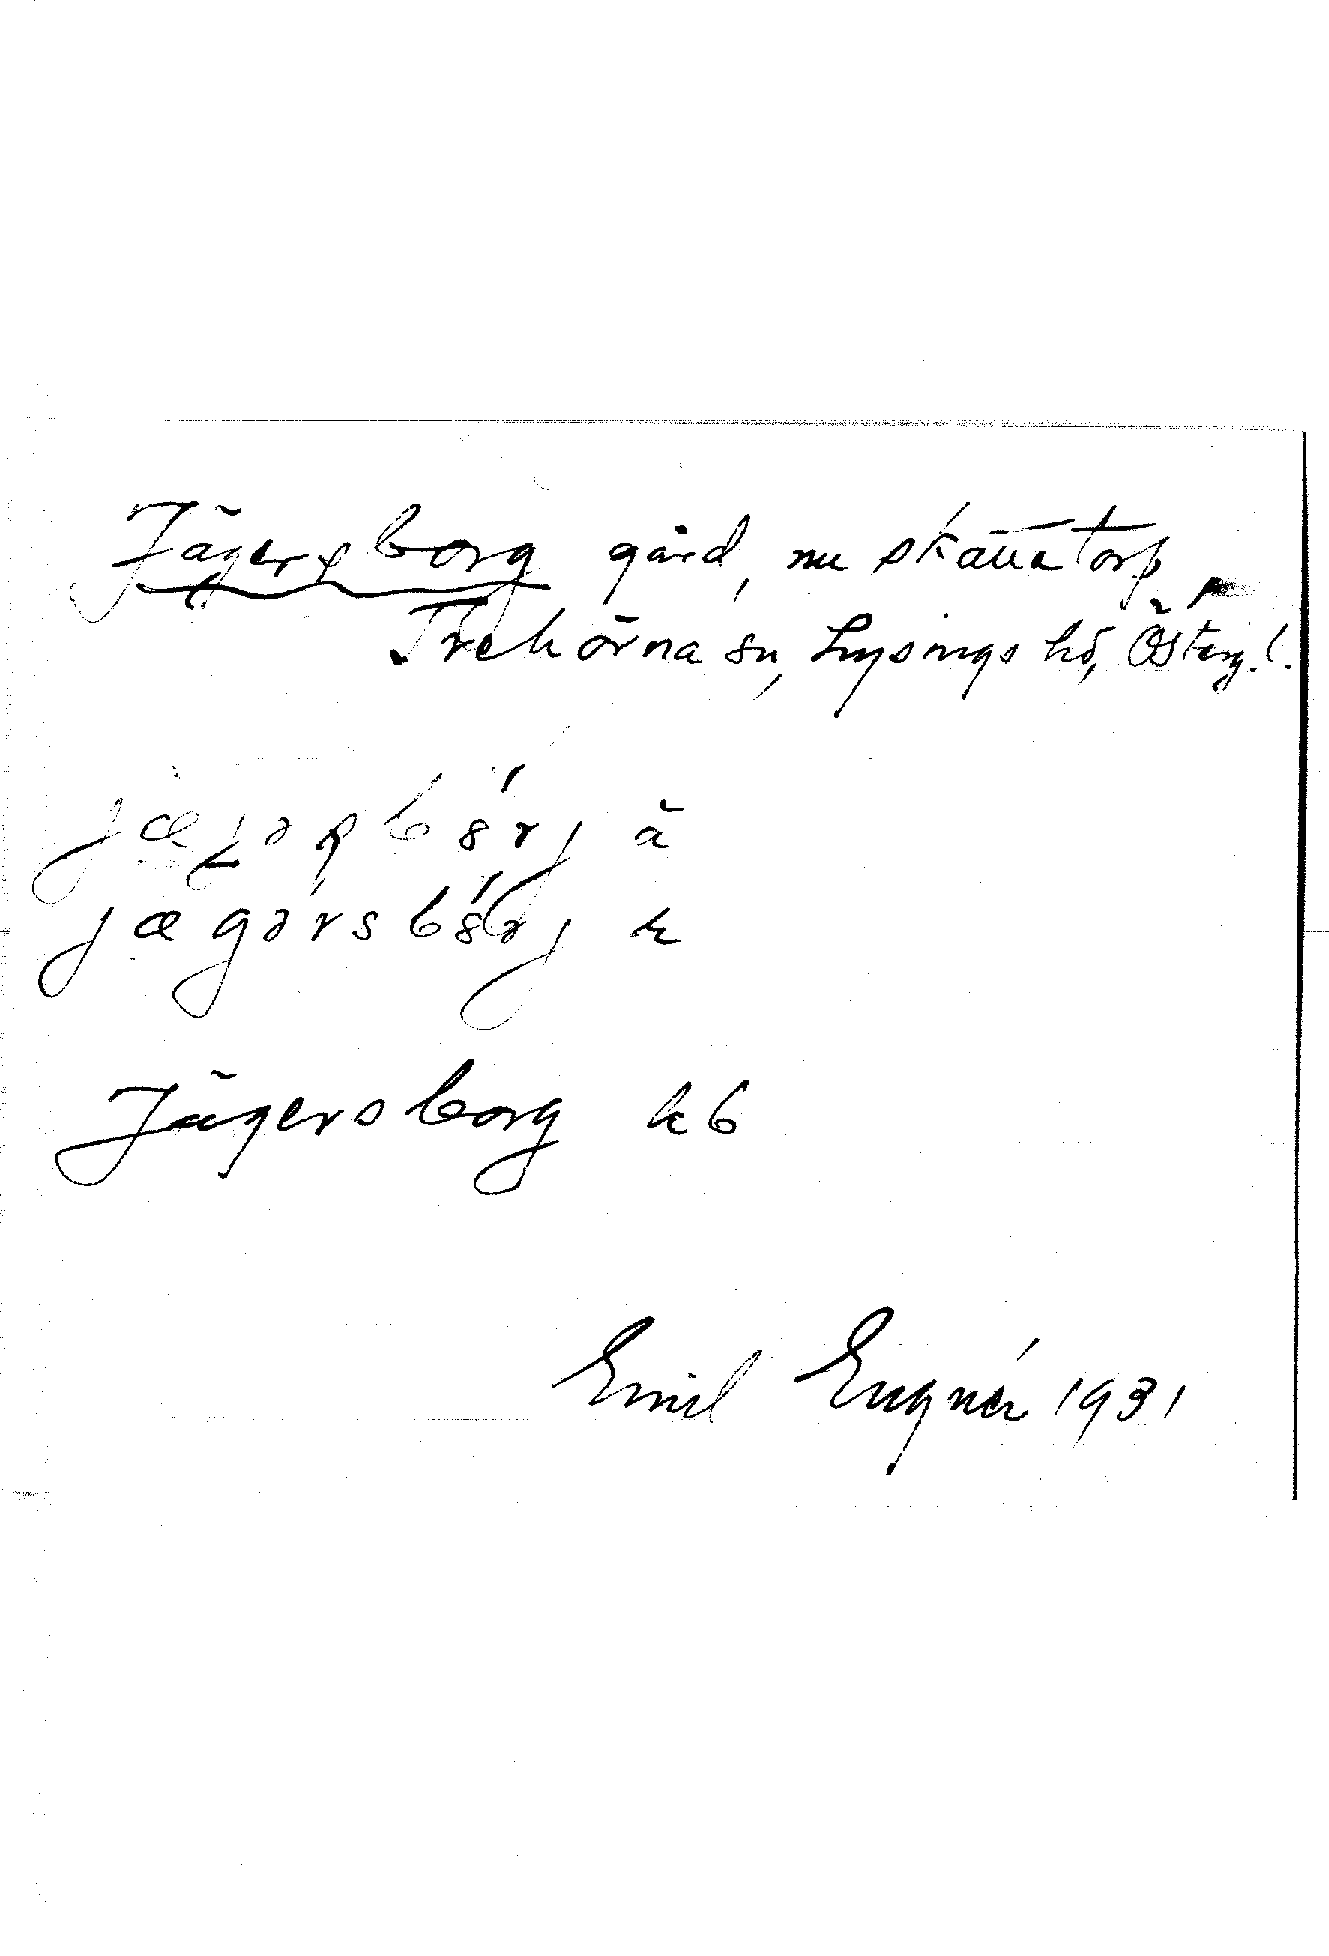 Jägersborg gård, nu skattetorp,
Trehörna sn, Lysings hd, Österg. l.
jægərsbórj k
Jägersborg kb
Emil Eugnér 1931